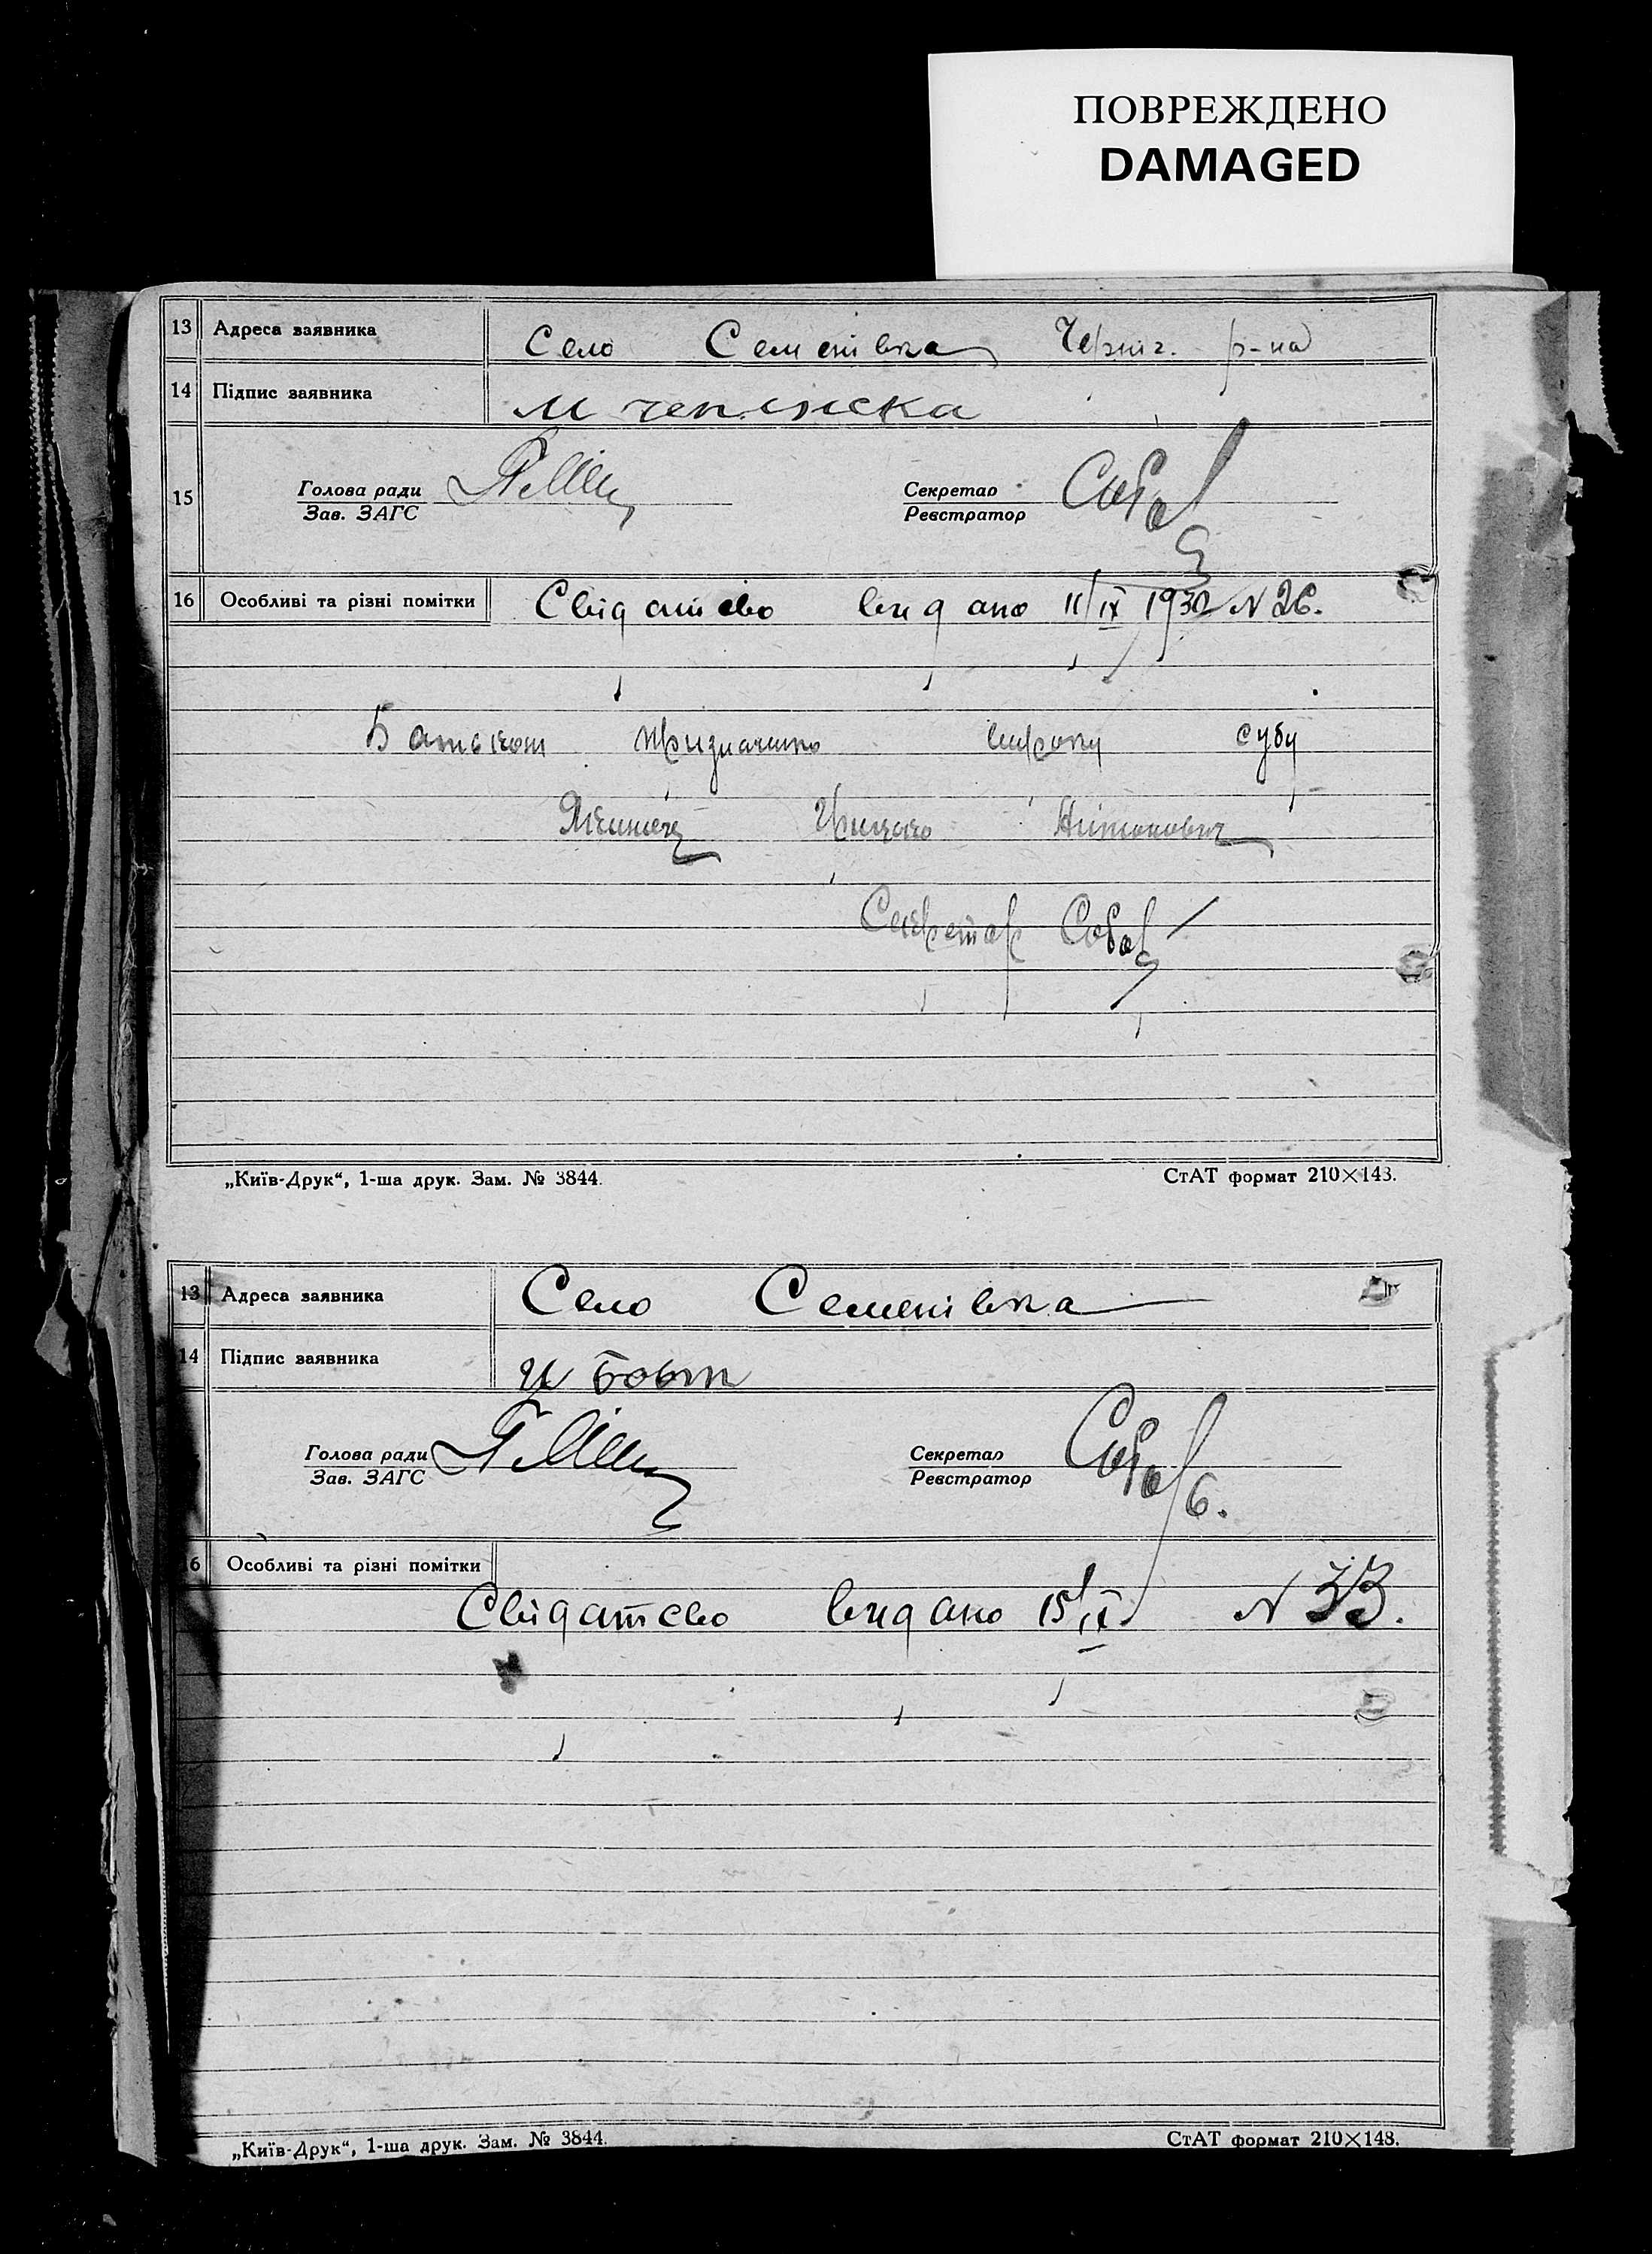 ПОВРЕЖДЕНО
DAMAGED
13 Адреса заявника Село Семенівка Черніг. р-на
14 Підпис заявника М
15 Голова ради Секретар
Зав. ЗАГС Реєстратор
16 Особливі та різні помітки Свідатсво видано 11/IX 1930 N 26.
Батьком призначино суду
Грицько Антонович
Сикретар
„Київ-Друк“, 1-ша друк. Зам. № 3844. СтАТ формат 210×143.
13 Адреса заявника Село Семенівка
14 Підпис заявника И Бовт
Голова ради Секретар
Зав. ЗАГС Реєстратор
16 Особливі та різні помітки
Свідатсво видано 15/IX N 33.
„Київ-Друк“, 1-ша друк. Зам. № 3844. СтАТ формат 210×148.